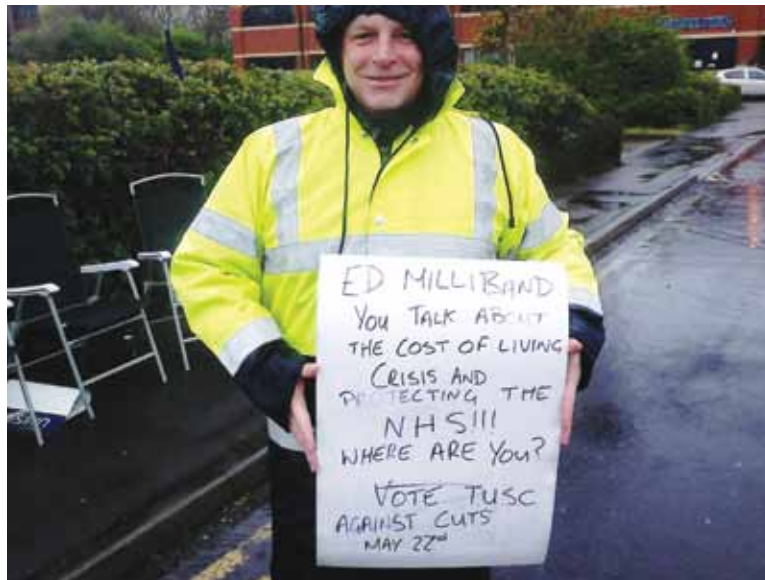 ED MILLIBAND
YOU TALK ABOUT
THE COST OF LIVING
CRISIS AND
PROTECTING THE
NHS!!!
WHERE ARE YOU?
VOTE TUSC
AGAINST CUTS
MAY 22nd